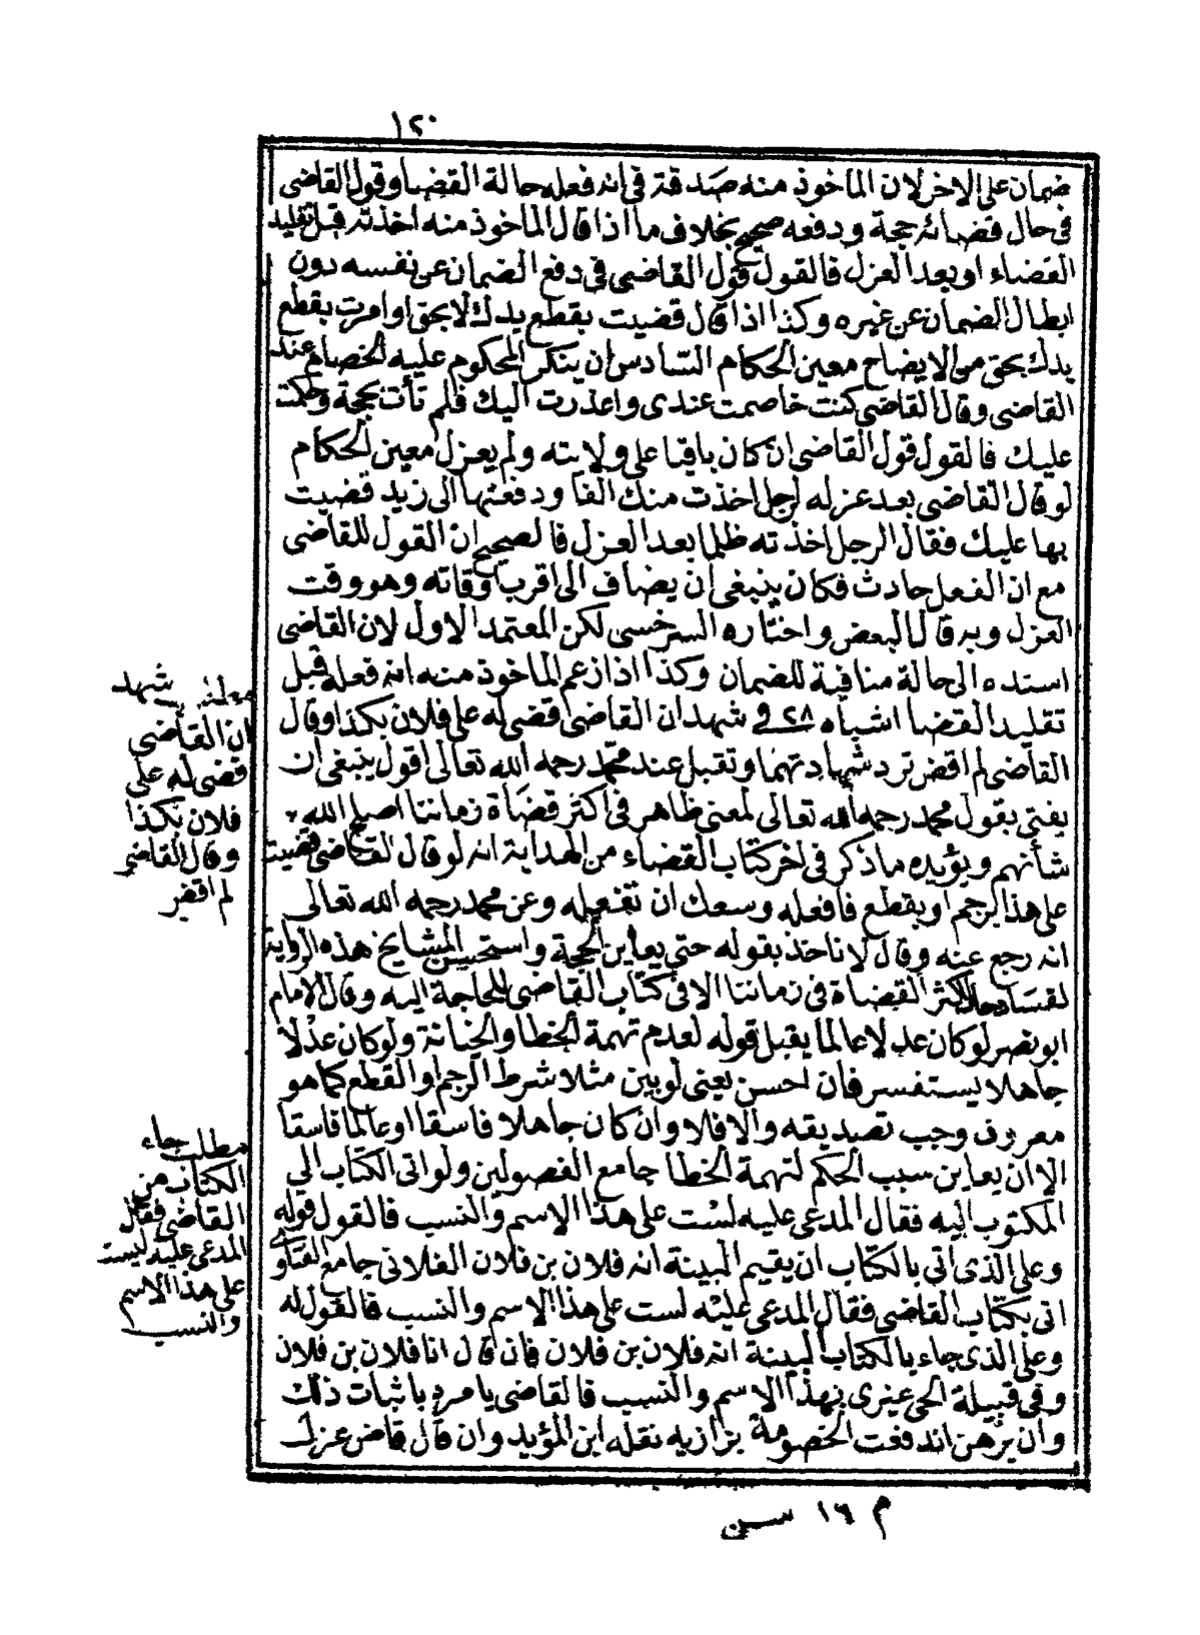 ١٢٠
ضمان على الاخر لان الماخوذ منه صدقه فى انه فعله حالة القضا وقول القاضى
فى حال قضائه حجة ودفعه صحيح بخلاف ما اذا قال الماخوذ منه اخذته قبل تقليد
القضاء او بعد العزل فالقول قول القاضى فى دفع الضمان عن نفسه دون
ابطال الضمان عن غيره وكذا اذا قال قضيت بقطع يدك لا بحق او امرت بقطع
يدك بحق من الايضاح معين الحكام السادس ان ينكر المحكوم عليه الخصام عند
القاضى وقال القاضى كنت خاصمت عندى واعذرت اليك فلم تأت بحجة وحكمت
عليك فالقول قول القاضى ان كان باقيا على ولايته ولم يعزل معين الحكام
لو قال القاضى بعد عزله لرجل اخذت منك الفا ودفعتها الى زيد قضيت
بها عليك فقال الرجل اخذته ظلما بعد العزل فالصحيح ان القول للقاضى
مع ان الفعل حادث فكان ينبغى ان يضاف الى اقرب اوقاته وهو وقت
العزل وبه قال البعض واختاره السرخسى لكن المعتمد الاول لان القاضى
اسنده الى حالة منافية للضمان وكذا اذا زعم الماخوذ منه انه فعله قبل
تقليد القضا اشباه ٢٨ فى شهد ان القاضى قضى له على فلان بكذا وقال
القاضى لم اقض ترد شهادتهما وتقبل عند محمد رحمه الله تعالى اقول ينبغى ان
يفتى بقول محمد رحمه الله تعالى لمعنى ظاهر فى اكثر قضاة زماننا اصلح الله
شأنهم ويؤيده ما ذكر فى اخر كتاب القضاء من الهداية انه لو قال القاضى قضيت
على هذا بالرجم او بقطع فافعله وسعك ان تفعله وعن محمد رحمه الله تعالى
انه رجع عنه وقال لا ناخذ بقوله حتى يعاين الحجة واستحسن المشايخ هذه الرواية
لفساد حال اكثر القضاة فى زماننا الا فى كتاب القاضى للحاجة اليه وقال الامام
ابو نصر لو كان عدلا عالما يقبل قوله لعدم تهمة الخطا والخيانة ولو كان عدلا
جاهلا يستفسر فان احسن يعنى لو بين مثلا شرط الرجم او القطع كما هو
معروف وجب تصديقه والا فلا وان كان جاهلا فاسقا او عالما فاسقا
الا ان يعاين سبب الحكم لتهمة الخطا جامع الفصولين ولو اتى الكتاب الى
المكتوب اليه فقال المدعى عليه لست على هذا الاسم والنسب فالقول قوله
وعلى الذى اتى بالكتاب ان يقيم البينة انه فلان بن فلان الفلانى جامع الفتاوى
اتى بكتاب القاضى فقال المدعى عليه لست على هذا الاسم والنسب فالقول له
وعلى الذى جاء بالكتاب البينة انه فلان بن فلان فان قال انا فلان بن فلان
وفى قبيلة الحى غيرى بهذا الاسم والنسب فالقاضى يامره باثبات ذلك
وان برهن اندفعت الخصومة بزازيه نقله ابن المؤيد وان قال قاض عزل
شهد
ان القاضى
قضى له على
فلان بكذا
وقال القاضى
لم اقض
مطلب جاء
الكتاب من
القاضى فقال
المدعى عليه ليست
على هذا الاسم
والنسب
م ١٦